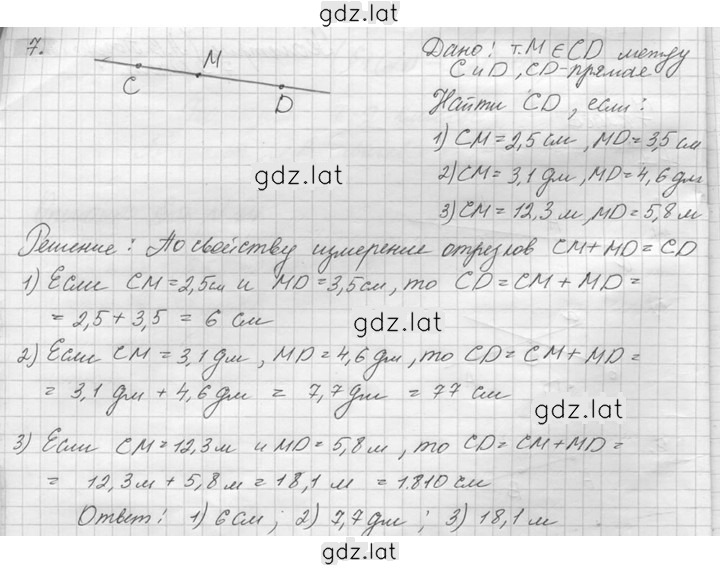 gdz.lat
7.
C
M
D
Дано: т.M ∈ CD между
C и D, CD-прямая
Найти CD, если:
1) CM = 2,5 см, MD = 3,5 см
gdz.lat
2) CM = 3,1 дм, MD = 4,6 дм
3) CM = 12,3 м, MD = 5,8 м
Решение: По свойству измерение отрезков CM + MD = CD
1) Если CM = 2,5 см и MD = 3,5 см, то CD = CM + MD =
= 2,5 + 3,5 = 6 см
gdz.lat
2) Если CM = 3,1 дм, MD = 4,6 дм, то CD = CM + MD =
= 3,1 дм + 4,6 дм = 7,7 дм = 77 см
gdz.lat
3) Если CM = 12,3 м и MD = 5,8 м, то CD = CM + MD =
= 12,3 м + 5,8 м = 18,1 м = 1810 см
Ответ: 1) 6 см; 2) 7,7 дм; 3) 18,1 м
gdz.lat